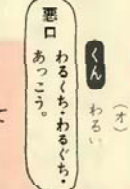 （オ）
くん わるい
悪口
わるくち・わるぐち・
あっこう。